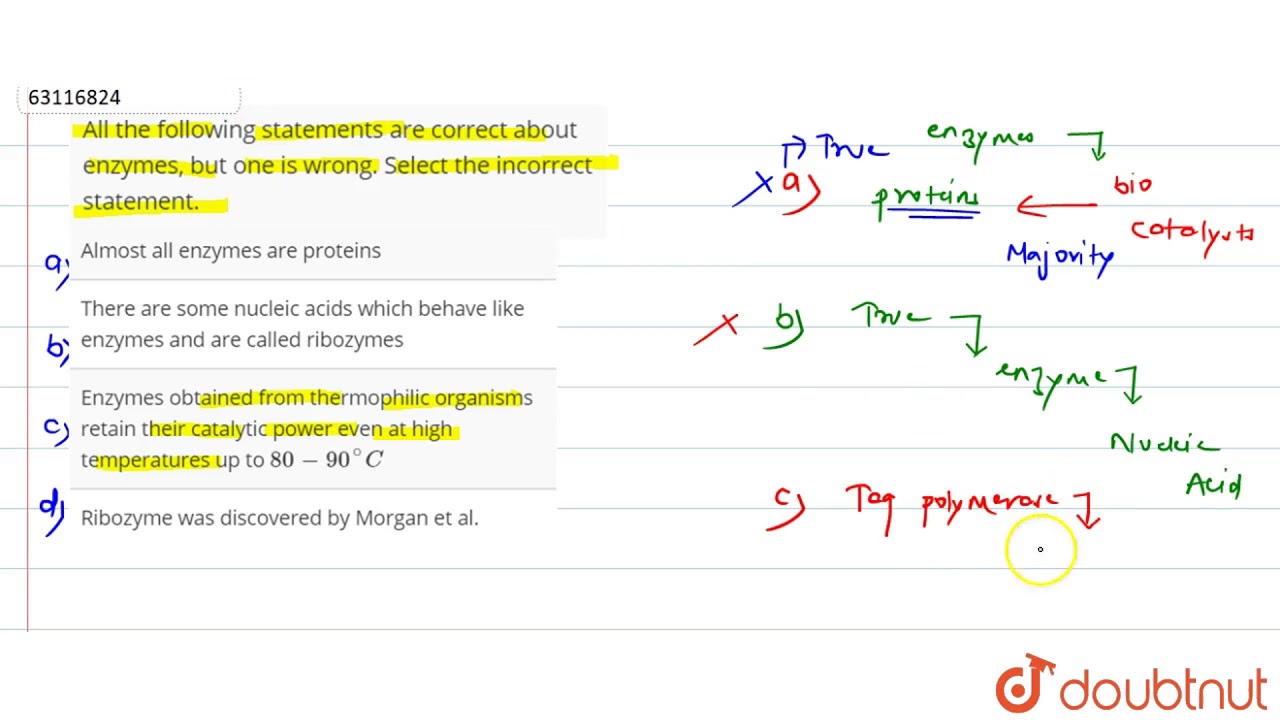 63116824
All the following statements are correct about
enzymes, but one is wrong. Select the incorrect
statement.
a) Almost all enzymes are proteins
b) There are some nucleic acids which behave like
enzymes and are called ribozymes
c) Enzymes obtained from thermophilic organisms
retain their catalytic power even at high
temperatures up to 80 − 90°C
d) Ribozyme was discovered by Morgan et al.
True enzymes
a) proteins bio
catalysts
Majority
b) True
enzyme
Nucleic
Acid
c) Taq polymerase
doubtnut